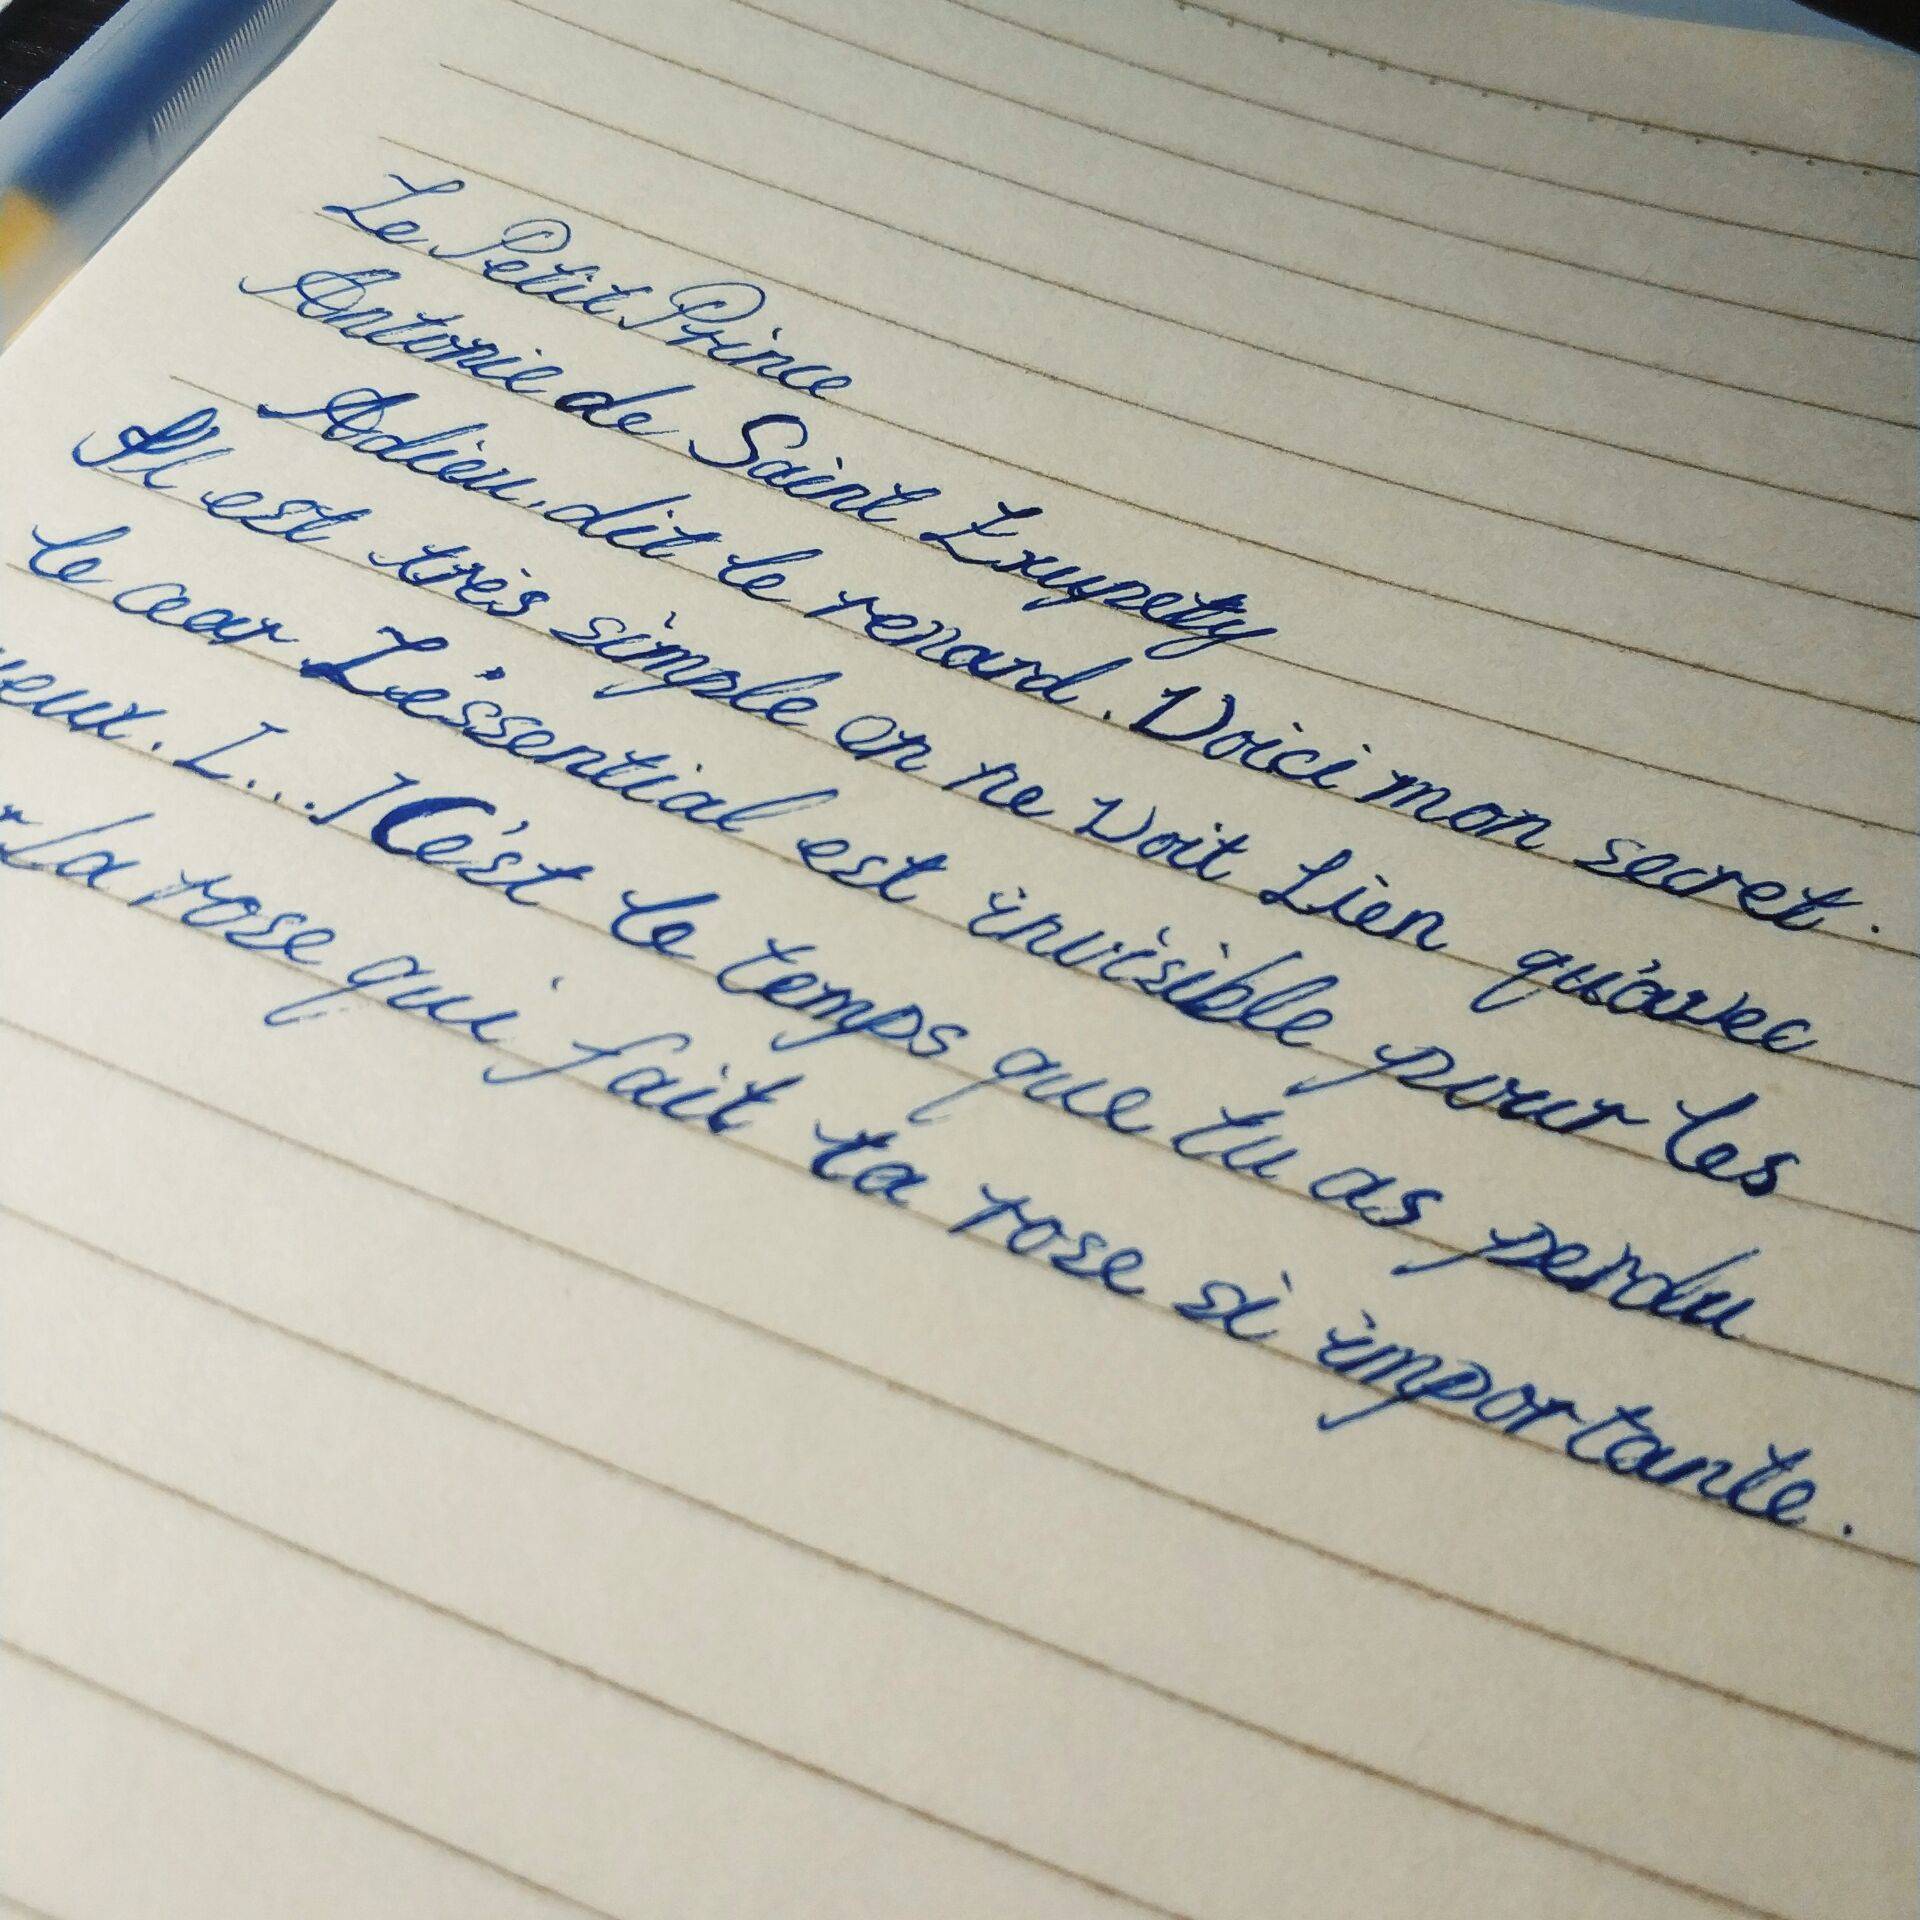 Le Petit Prince
Antonie de Saint Exupéty
Adieu, dit le renard. Voici mon secret.
Il est très simple on ne voit Lien qu'avec
le cear Le'ssential est invisible pour les
yeux. [...] C'e'st le temps que tu as perdu
la rose qui fait ta rose si importante.